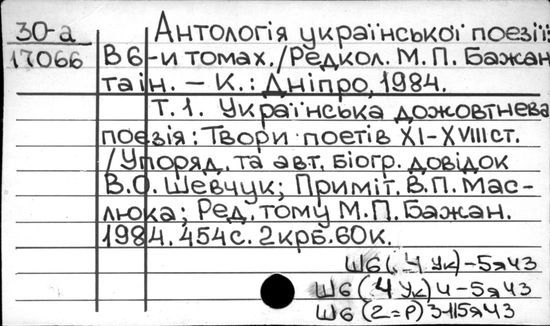 30-а
17066
Антологія української поезії:
В 6-и томах./Редкол. М.П. Бажан
та ін. – К.: Дніпро, 1984.
Т.1. Українська дожовтнева
поезія: Твори поетів XI-XVIII ст.
/Упоряд. та авт. біогр. довідок
В.О. Шевчук; Приміт. В.П. Мас-
люка; Ред. тому М.П. Бажан.
1984. 454с. 2крб. 60к.
Ш6(4Ук)-5я43
Ш6(4Ук)4-5я43
Ш6(2=Р)3-115я43